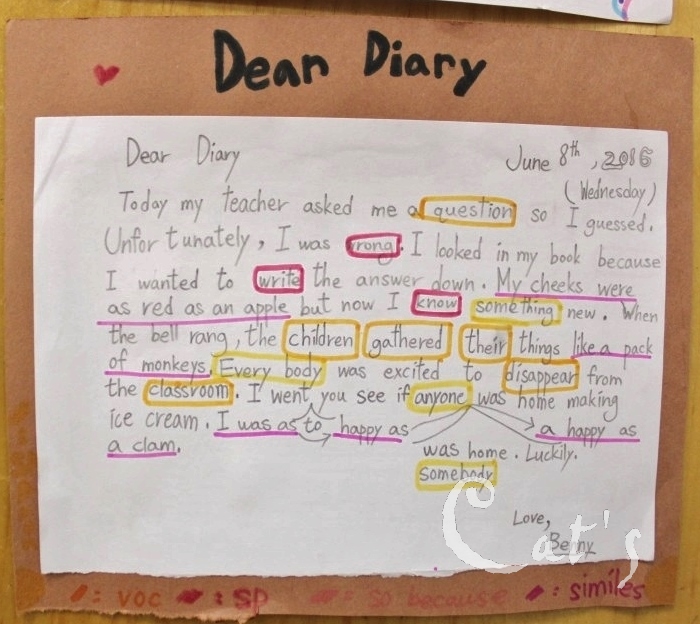 Dear Diary
Dear Diary
June 8th, 2016
(Wednesday)
Today my teacher asked me a question so I guessed.
Unfortunately, I was rong. I looked in my book because
I wanted to write the answer down. My cheeks were
as red as an apple but now I know something new. When
the bell rang, the children gathered their things like a pack
of monkeys. Every body was excited to disappear from
the classroom. I went you see if anyone was home making
ice cream. I was as to happy as a happy as
a clam.
was home. Luckily.
somebody
Love,
Benny
Cat's
: voc : SP : so because : similes